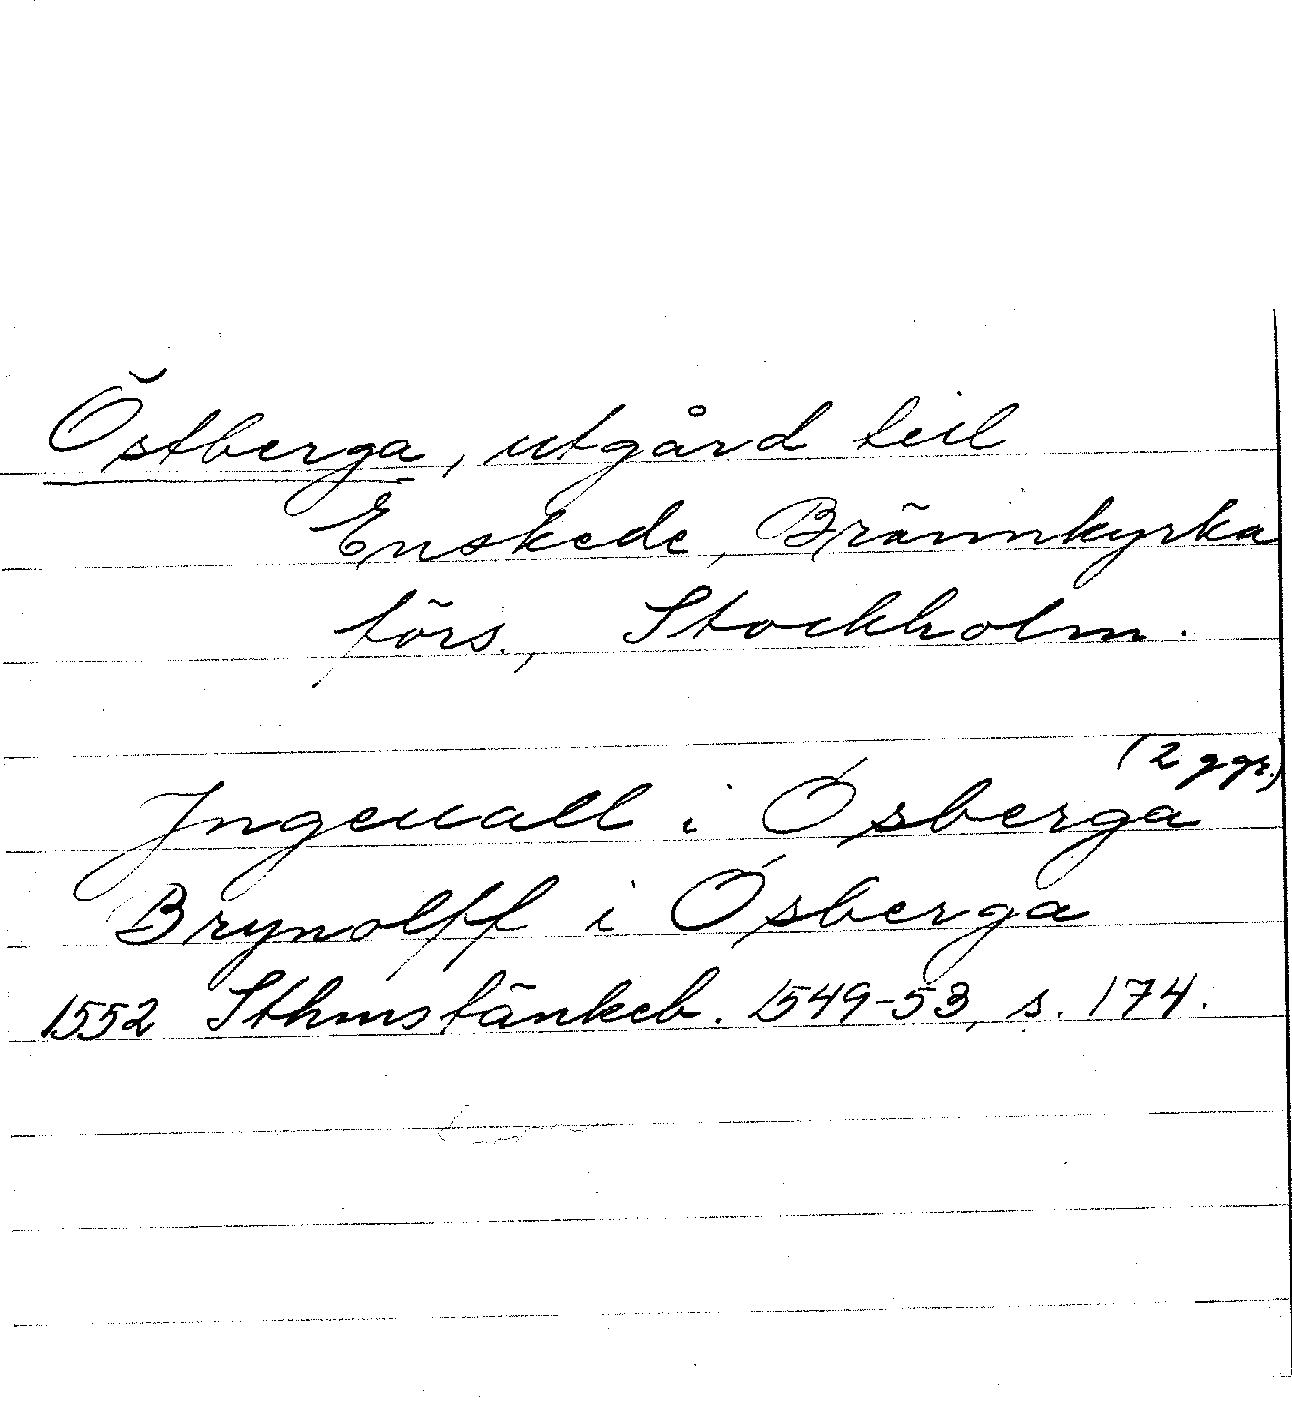 Östberga, utgård till
Enskede, Brännkyrka
förs., Stockholm.
(2 ggr.)
Jngeuall i Ösberga
Brynolff i Ösberga
1552 Sthmstänkeb. 1549-53, s. 174.